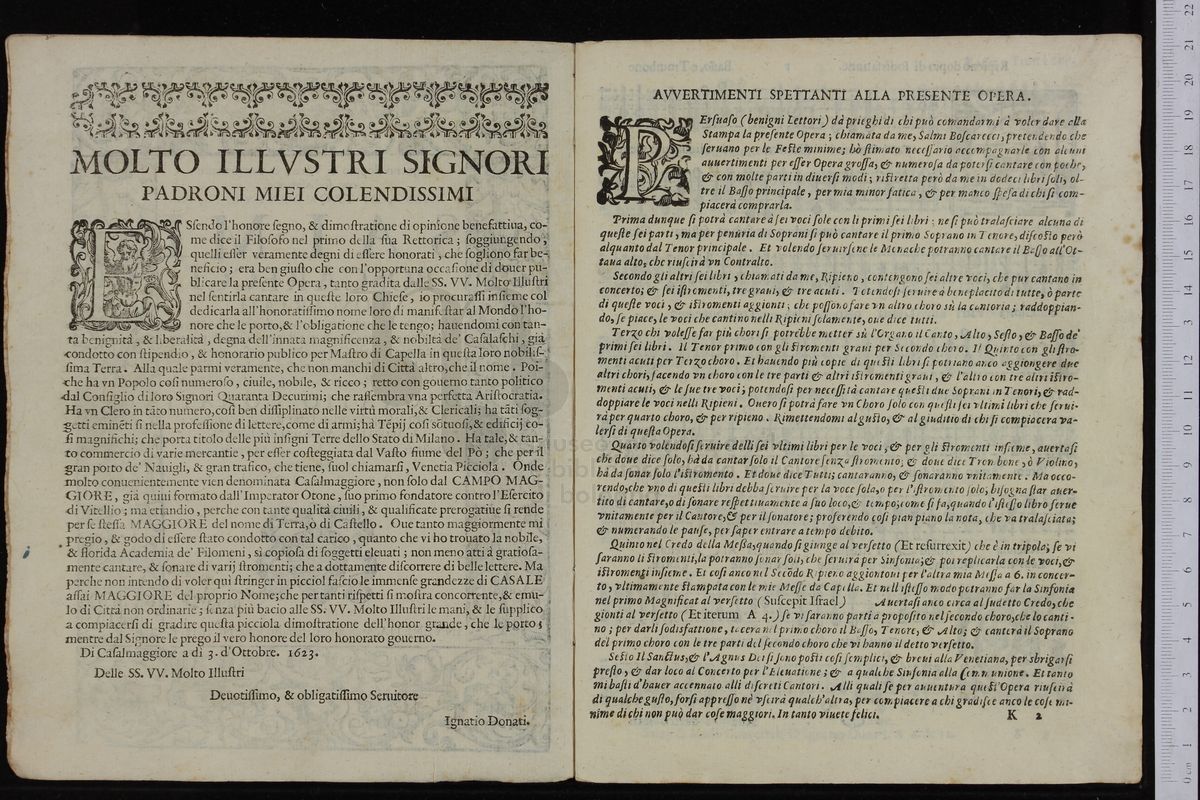 MOLTO ILLVSTRI SIGNORI
PADRONI MIEI COLENDISSIMI
ESſendo l'honore ſegno, & dimoſtratione di opinione benefattiua, co-
me dice il Filoſofo nel primo della ſua Rettorica; ſoggiungendo,
quelli eſſer veramente degni di eſſere honorati, che ſogliono far be-
neficio; era ben giuſto che con l'opportuna occaſione di douer pu-
blicare la preſente Opera, tanto gradita dalle SS. VV. Molto Illuſtri
nel ſentirla cantare in queſte loro Chieſe, io procuraſſi inſieme col
dedicarla all'honoratiſſimo nome loro di manifeſtar al Mondo l'ho-
nore che le porto, & l'obligatione che le tengo; hauendomi con tan-
ta benignità, & liberalità, degna dell'innata magnificenza, & nobiltà de' Caſalaſchi, già
condotto con ſtipendio, & honorario publico per Maſtro di Capella in queſta loro nobiliſ-
ſima Terra. Alla quale parmi veramente, che non manchi di Città altro, che il nome. Poi-
che ha vn Popolo coſi numeroſo, ciuile, nobile, & ricco; retto con gouerno tanto politico
dal Conſiglio di loro Signori Quaranta Decurimi; che raſſembra vna perfetta Ariſtocratia.
Ha vn Clero in tāto numero, coſi ben diſſiplinato nelle virtù morali, & Clericali; ha tāti ſog-
getti eminēti ſi nella profeſſione di lettere, come di armi; hà Tēpij coſi sōtuoſi, & edificij co-
ſi magnifichi; che porta titolo delle più inſigni Terre dello Stato di Milano. Ha tale, & tan-
to commercio di varie mercantie, per eſſer coſteggiata dal Vaſto fiume del Pò; che per il
gran porto de' Nauigli, & gran trafico, che tiene, ſuol chiamarſi, Venetia Picciola. Onde
molto conuenientemente vien denominata Caſalmaggiore, non ſolo dal CAMPO MAG-
GIORE, già quiui formato dall'Imperator Otone, ſuo primo fondatore contro l'Eſercito
di Vitellio; ma etiandio, perche con tante qualità ciuili, & qualificate prerogatiue ſi rende
per ſe ſteſſa MAGGIORE del nome di Terra, ò di Caſtello. Oue tanto maggiormente mi
pregio, & godo di eſſere ſtato condotto con tal carico, quanto che vi ho trouato la nobile,
& florida Academia de' Filomeni, ſi copioſa di ſoggetti eleuati; non meno atti à gratioſa-
mente cantare, & ſonare di varij ſtromenti; che a dottamente diſcorrere di belle lettere. Ma
perche non intendo di voler qui ſtringer in picciol faſcio le immenſe grandezze di CASALE
aſſai MAGGIORE del proprio Nome; che per tanti riſpetti ſi moſtra concorrente, & emu-
lo di Città non ordinarie; ſenza più bacio alle SS. VV. Molto Illuſtri le mani, & le ſupplico
a compiacerſi di gradire queſta picciola dimoſtratione dell'honor grande, che le porto;
mentre dal Signore le prego il vero honore del loro honorato gouerno.
Di Caſalmaggiore a dì 3. d'Ottobre. 1623.
Delle SS. VV. Molto Illuſtri
Deuotiſſimo, & obligatiſſimo Seruitore
Ignatio Donati.
AVVERTIMENTI SPETTANTI ALLA PRESENTE OPERA.
PErſuaſo (benigni Lettori) dà prieghi di chi può comandarmi à voler dare alla
Stampa la preſente Opera; chiamata da me, Salmi Boſcarecci, pretendendo che
ſeruano per le Feſte minime; hò ſtimato neceſſario accompagnarle con alcuni
auuertimenti per eſſer Opera groſſa, & numeroſa da poterſi cantare con poche,
& con molte parti in diuerſi modi; riſtretta però da me in dodeci libri ſoli, ol-
tre il Baſſo principale, per mia minor fatica, & per manco ſpeſa di chi ſi com-
piacerà comprarla.
Prima dunque ſi potrà cantare à ſei voci ſole con li primi ſei libri; ne ſi può tralaſciare alcuna di
queſte ſei parti, ma per penuria di Soprani ſi può cantare il primo Soprano in Tenore, diſcoſto però
alquanto dal Tenor principale. Et volendo ſeruirſene le Monache potranno cantare il Baſſo all'Ot-
taua alto, che riuſcirà vn Contralto.
Secondo gli altri ſei libri, chiamati da me, Ripieno, contengono ſei altre voci, che pur cantano in
concerto; & ſei iſtromenti, tre graui, & tre acuti. Potendoſi ſeruire à beneplacito di tutte, ò parte
di queſte voci, & iſtromenti aggionti; che poſſono fare vn altro choro sù la cantoria; raddoppian-
do, ſe piace, le voci che cantino nelli Ripieni ſolamente, oue dice tutti.
Terzo chi voleſſe far più chori ſi potrebbe metter sù l'Organo il Canto, Alto, Seſto, & Baſſo de'
primi ſei libri. Il Tenor primo con gli ſtromenti graui per Secondo choro. Il Quinto con gli ſtro-
menti acuti per Terzo choro. Et hauendo più copie di queſti libri ſi potriano anco aggiongere due
altri chori, facendo vn choro con le tre parti & altri iſtromenti graui, & l'altro con tre altri iſtro-
menti acuti, & le ſue tre voci; potendoſi per neceſſità cantare queſti due Soprani in Tenori, & rad-
doppiare le voci nelli Ripieni. Ouero ſi potrà fare vn Choro ſolo con queſti ſei vltimi libri che ſerui-
rà per quarto choro, & per ripieno. Rimettendomi al guſto, & al giuditio di chi ſi compiacera va-
lerſi di queſta Opera.
Quarto volendoſi ſeruire delli ſei vltimi libri per le voci, & per gli ſtromenti inſieme, auertaſi
che doue dice ſolo, hà da cantar ſolo il Cantore ſenza ſtromento; & doue dice Trombone, ò Violino,
hà da ſonar ſolo l'iſtromento. Et doue dice Tutti; cantaranno, & ſonaranno vnitamente. Ma occo-
rendo, che vno di queſti libri debba ſeruire per la voce ſola, ò per l'iſtromento ſolo; biſogna ſtar auer-
tito di cantare, ò di ſonare reſpettiuamente a ſuo loco, & tempo; come ſi fa, quando l'iſteſſo libro ſerue
vnitamente per il Cantore, & per il ſonatore; proferendo coſi pian piano la nota, che va tralaſciata;
& numerando le pauſe, per ſaper entrare a tempo debito.
Quinto nel Credo della Meſſa, quando ſi giunge al verſetto (Et reſurrexit) che è in tripola; ſe vi
ſaranno li ſtromenti, la potranno ſonar ſoli, che ſeruirà per Sinfonia; & poi replicarla con le voci, &
iſtromenti inſieme. Et coſi anco nel Secōdo Ripieno aggiontoui per l'altra mia Meſſa a 6. in concer-
to, vltimamente ſtampata con le mie Meſſe da Capella. Et nell'iſteſſo modo potranno far la Sinfonia
nel primo Magnificat al verſetto (Suſcepit Iſrael) Auertaſi anco circa al ſudetto Credo, che
gionti al verſetto (Et iterum A 4.) ſe vi ſaranno parti a propoſito nel ſecondo choro, che lo canti-
no; per darli ſodisfattione, tacerà nel primo choro il Baſſo, Tenore, & Alto; & canterà il Soprano
del primo choro con le tre parti del ſecondo choro che vi hanno il detto verſetto.
Seſto Il Sanctus, & l'Agnus Dei ſi ſono poſti coſi ſemplici, & breui alla Venetiana, per sbrigarſi
preſto, & dar loco al Concerto per l'Eleuatione; & a qualche Sinfonia alla Communione. Et tanto
mi baſti d'hauer accennato alli diſcreti Cantori. Alli quali ſe per auuentura queſt'Opera riuſcirà
di qualche guſto, forſi appreſſo nè vſcirà qualch'altra, per compiacere a chi gradiſce anco le coſe mi-
nime di chi non può dar coſe maggiori. In tanto viuete felici.
K 2